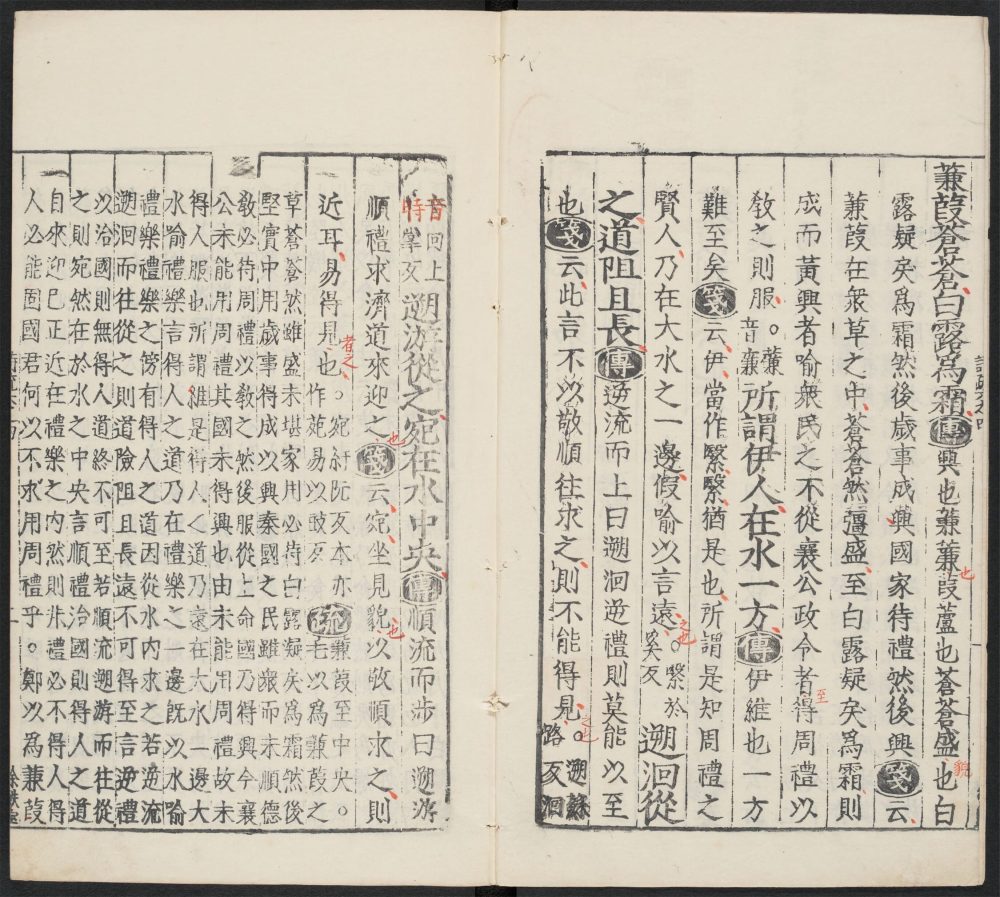 蒹葭蒼蒼白露爲霜傳興也蒹薕葭蘆也蒼蒼盛也白
露疑矣爲霜然後歲事成興國家待禮然後興箋云
蒹葭在衆草之中蒼蒼然彊盛至白露疑矣爲霜則
成而黃興者喻衆民之不從襄公政令者得周禮以
敎之則服。薕音廉所謂伊人在水一方傳伊維也一方
難至矣箋云伊當作繄繄猶是也所謂是知周禮之
賢人乃在大水之一邊假喻以言遠。繄於奚反遡洄從
之道阻且長傳逆流而上曰遡洄逆禮則莫能以至
也箋云此言不以敬順往求之則不能得見。遡蘇路反洄
音回上時掌反遡游從之宛在水中央傳順流而步曰遡游
順禮求濟道來迎之箋云宛坐見貌以敬順求之則
近耳易得見也。宛紆阮反本亦作菀易以豉反疏蒹葭至中央。毛以爲蒹葭之
草蒼蒼然雖盛未堪家用必待白露凝矣爲霜然後
堅實中用歲事得成以興秦國之民雖衆而未順德
敎必待周禮以敎之然後服從上命國乃得興今襄
公未能用周禮其國未得興也由未能用周禮故未
得人服也所謂維是得人之道乃遠在大水一邊大
水喻禮樂言得人之道乃在禮樂之一邊旣以水喻
禮樂禮樂之傍有得人之道因從水內求之若逆流
遡洄而往從之則道險阻且長遠不可得至言逆禮
以治國則無得人道終不可至若順流遡游而往從
之則宛然在於水之中央言順禮治國則得人之道
自來迎已正近在禮樂之內然則非禮必不得人得
人必能固國君何以不求用周禮乎。鄭以爲蒹葭
也
貌
至
之也
之也
也
也
者之